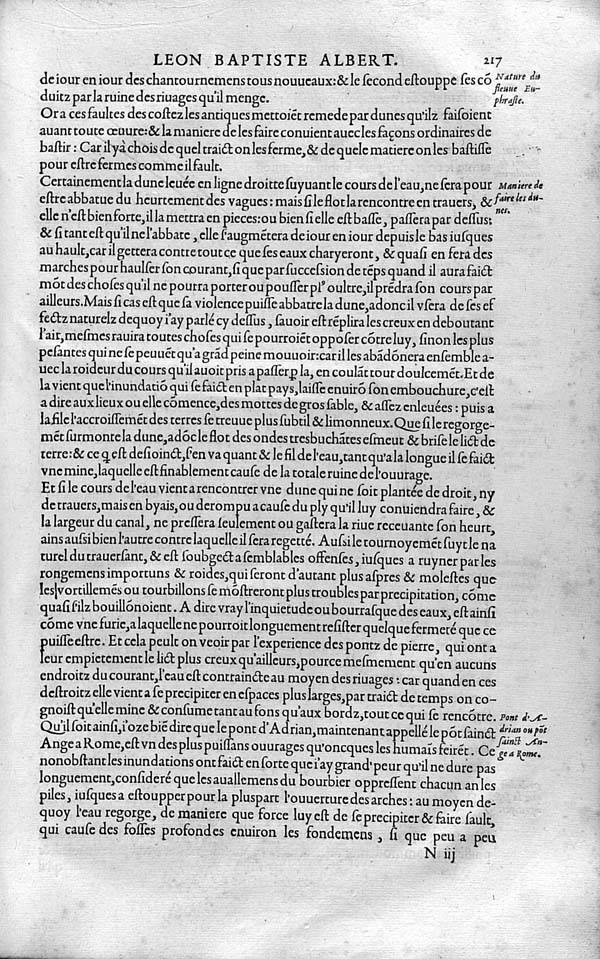 LEON BAPTISTE ALBERT. 217
de iour en iour des chantournemens tous nouueaux: & le second estouppe ses cō
duitz par la ruine des riuages qu'il menge.
Nature du
fleuue Eu-
phraste.
Or a ces faultes des costez les antiques mettoiēt remede par dunes qu'ilz faisoient
auant toute œuure: & la maniere de les faire conuient auec les façons ordinaires de
bastir: Car il yà chois de quel traict on les ferme, & de quele matiere on les bastisse
pour estre fermes comme il fault.
Certainement la dune leuée en ligne droitte suyuant le cours de l'eau, ne sera pour
estre abbatue du heurtement des vagues: mais si le flot la rencontre en trauers, &
elle n'est bien forte, il la mettra en pieces: ou bien si elle est basse, passera par dessus:
Maniere de
faire les du-
nes.
& si tant est qu'il ne l'abbate, elle s'augmētera de iour en iour depuis le bas iusques
au hault, car il gettera contre tout ce que ses eaux charyeront, & quasi en fera des
marches pour haulser son courant, si que par succession de tēps quand il aura faict
mōt des choses qu'il ne pourra porter ou pousser plꝰ oultre, il prēdra son cours par
ailleurs. Mais si cas est que sa violence puisse abbatre la dune, adonc il vsera de ses ef
fectz naturelz dequoy i'ay parlé cy dessus, sauoir est rēplira les creux en deboutant
l'air, mesmes rauira toutes choses qui se pourroiēt opposer cōtre luy, sinon les plus
pesantes qui ne se peuuēt qu'a grād peine mouuoir: car il les abādōnera ensemble a-
uec la roideur du cours qu'il auoit pris a passer ꝑ la, en coulāt tout doulcemēt. Et de
la vient que l'inundatiō qui se faict en plat pays, laisse enuirō son embouchure, c'est
a dire aux lieux ou elle cōmence, des mottes de gros sable, & assez enleuées: puis a
la file l'accroissemēt des terres se treuue plus subtil & limonneux. Que si le regorge-
mēt surmonte la dune, adōc le flot des ondes tresbuchātes esmeut & brise le lict de
terre: & ce q̄ est desioinct, s'en va quant & le fil de l'eau, tant qu'a la longue il se faict
vne mine, laquelle est finablement cause de la totale ruine de l'ouurage.
Et si le cours de l'eau vient a rencontrer vne dune qui ne soit plantée de droit, ny
de trauers, mais en byais, ou derompu a cause du ply qu'il luy conuiendra faire, &
la largeur du canal, ne pressera seulement ou gastera la riue receuante son heurt,
ains aussi bien l'autre contre laquelle il sera regetté. Aussi le tournoyemēt suyt le na
turel du trauersant, & est soubgect a semblables offenses, iusques a ruyner par les
rongemens importuns & roides, qui seront d'autant plus aspres & molestes que
les vortillemēs ou tourbillons se mōstreront plus troubles par precipitation, cōme
quasi s'ilz bouillōnoient. A dire vray l'inquietude ou bourrasque des eaux, est ainsi
cōme vne furie, a laquelle ne pourroit longuement resister quelque fermeté que ce
puisse estre. Et cela peult on veoir par l'experience des pontz de pierre, qui ont a
leur empietement le lict plus creux qu'ailleurs, pource mesmement qu'en aucuns
endroitz du courant, l'eau est contraincte au moyen des riuages: car quand en ces
destroitz elle vient a se precipiter en espaces plus larges, par traict de temps on co-
gnoist qu'elle mine & consume tant au fons qu'aux bordz, tout ce qui se rencōtre.
Qu'il soit ainsi, i'oze biē dire que le pont d'Adrian, maintenant appellé le pōt sainct
Ange a Rome, est vn des plus puissans ouurages qu'oncques les humaīs feirēt. Ce
Pont d'A-
drian ou pōt
sainct An-
ge a Rome.
nonobstant les inundations ont faict en sorte que i'ay grand' peur qu'il ne dure pas
longuement, consideré que les auallemens du bourbier oppressent chacun an les
piles, iusques a estoupper pour la pluspart l'ouuerture des arches: au moyen de-
quoy l'eau regorge, de maniere que force luy est de se precipiter & faire sault,
qui cause des fosses profondes enuiron les fondemens, si que peu a peu
N iij